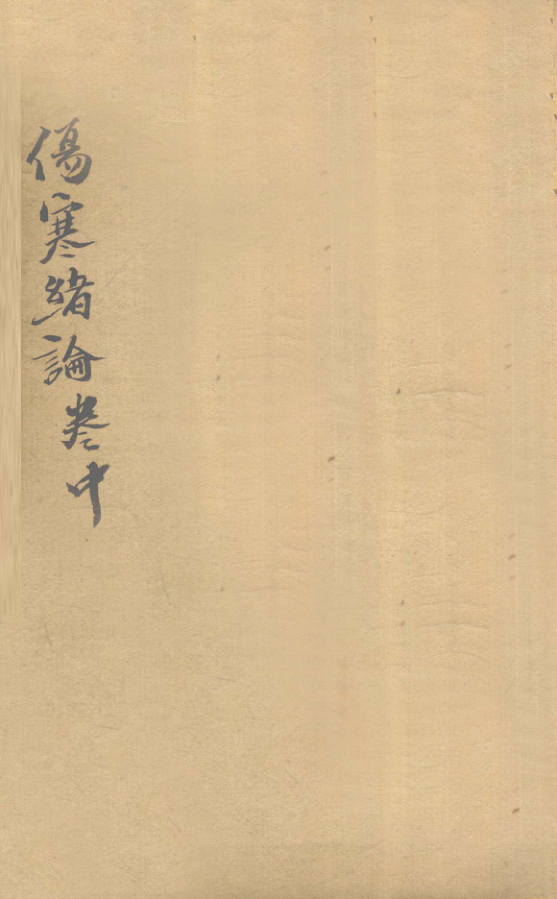 傷寒緒論卷中